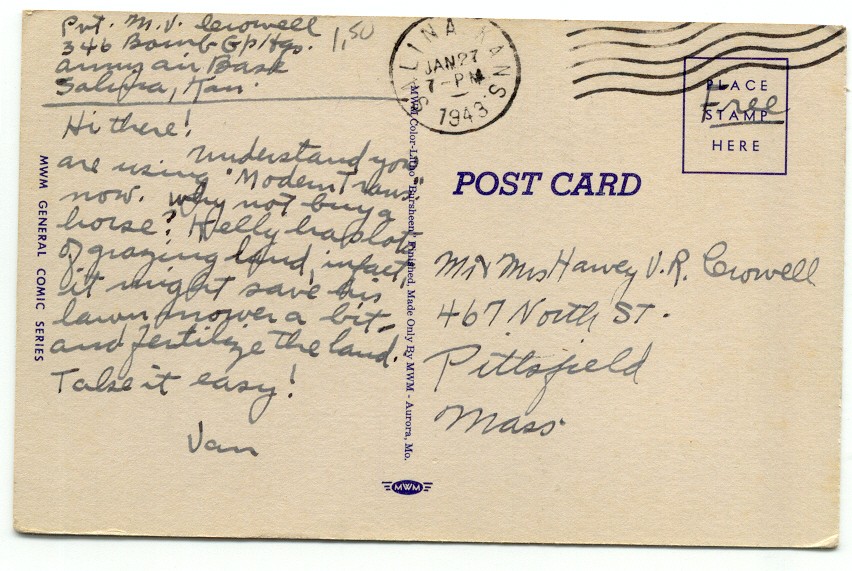 Pvt. M.V. Crowell
346 Bomb Gp/Hqs.
Army air Base
Salina, Kan.
1,50
Hi there!
Understand you
are using "Modern Trans"
now. Why not buy a
horse? Helly has lots
of grazing land, infact,
it might save his
lawn mower a bit -
and fertilize the land.
Take it easy!
Van
MWM GENERAL COMIC SERIES
MWM Color-Litho "Bursheen" Finished, Made Only By MWM - Aurora, Mo.
MWM
SALINA KANS
JAN 27
7-PM
1943
PLACE
STAMP
HERE
Free
POST CARD
Mr Mrs Harvey V.R. Crowell
467 North ST.
Pittsfield
Mass.